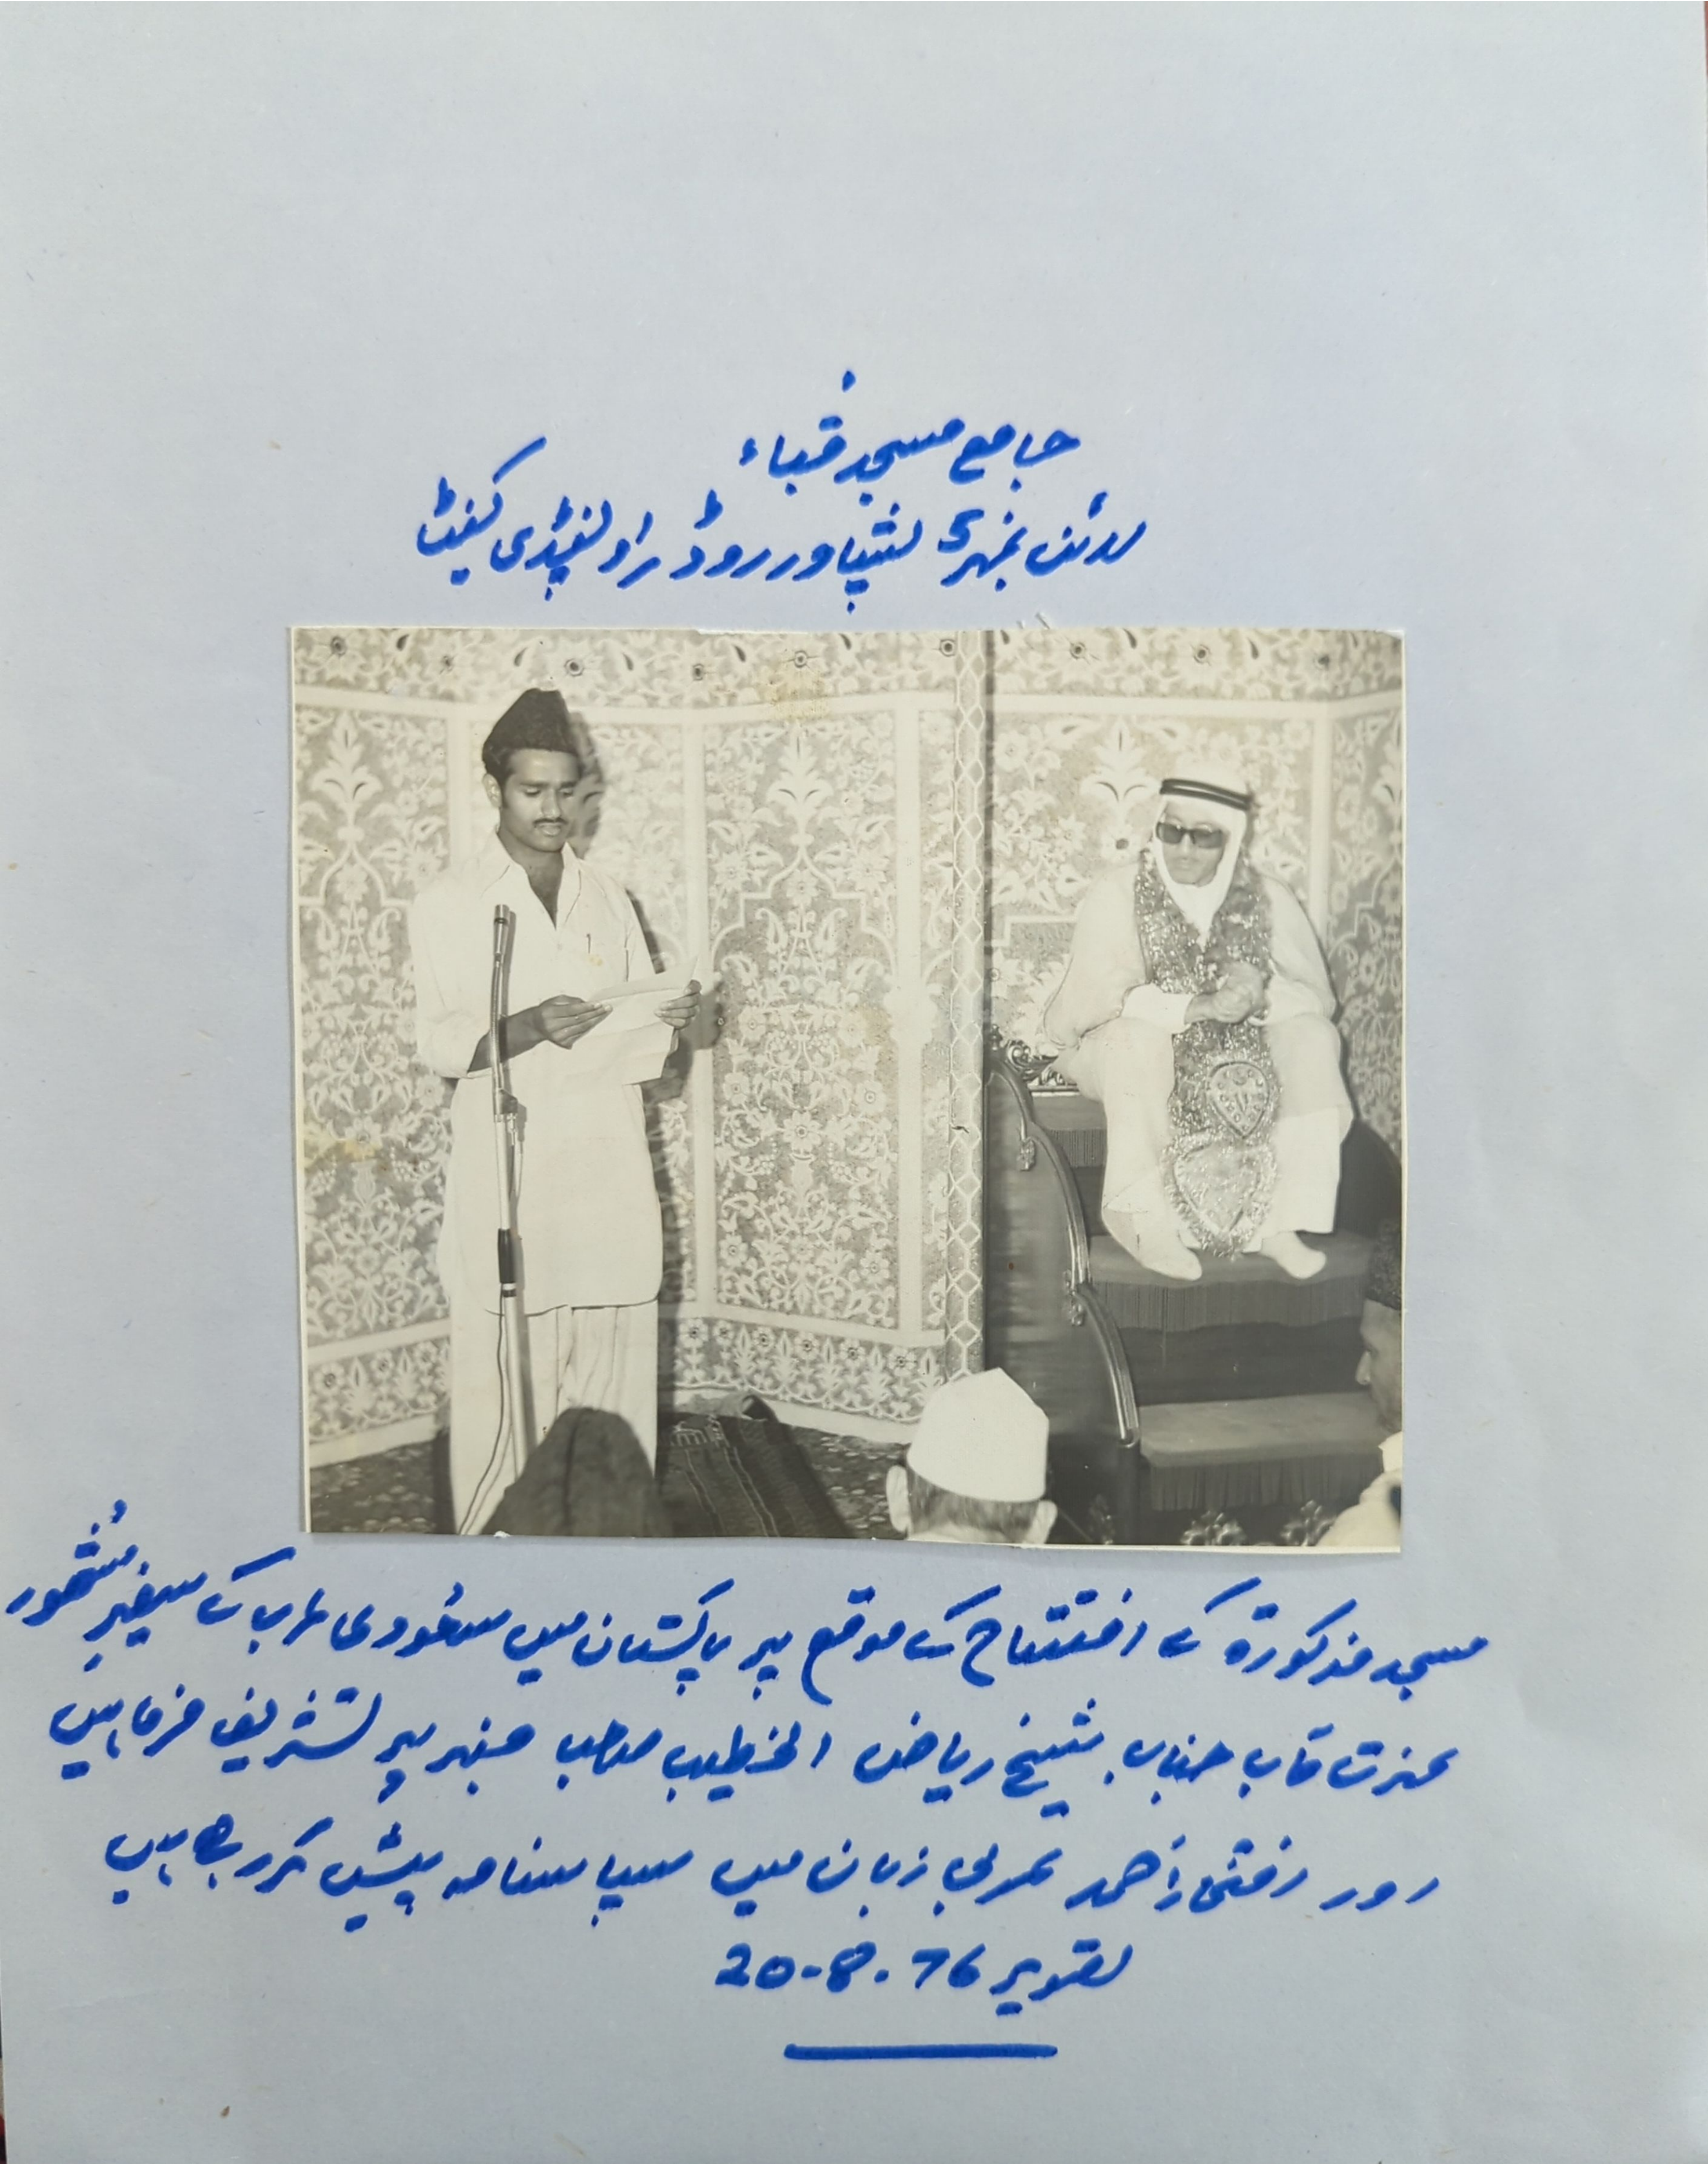 جامع مسجد قباء
لائن نمبر 5 پشاور روڈ راولپنڈی کینٹ
مسجد مذکورة کے افتتاح کے موقع پر پاکستان میں سعودی عرب کے سفیر
عزت مآب جناب شیخ ریاض الخطیب صاحب منبر پر تشریف فرما ہیں
اور احمد عربی زبان میں سپاسنامہ پیش کر رہے ہیں
تصویر 20-8-76